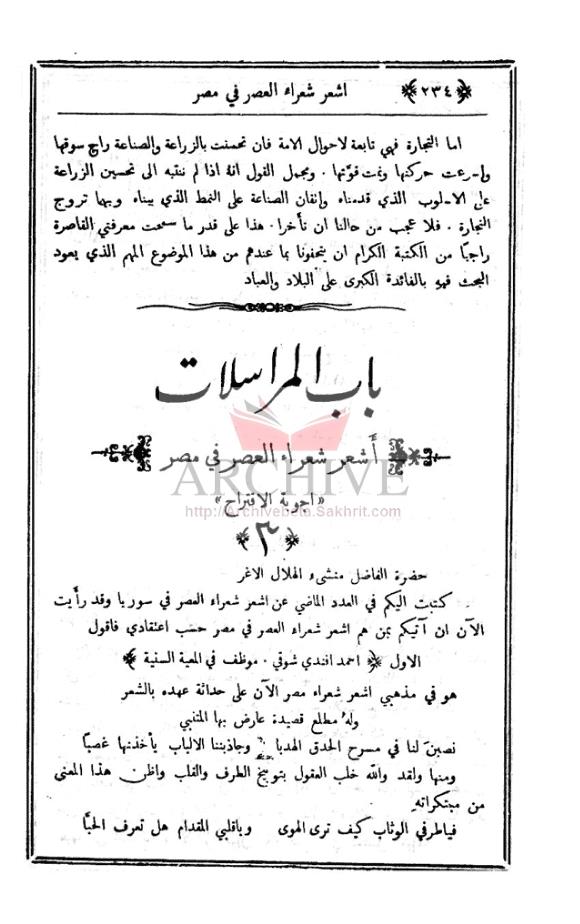 ﴿٢٣٤﴾ اشعر شعراء العصر في مصر
اما التجارة فهي تابعة لاحوال الامة فان تحسنت بالزراعة والصناعة راج سوقها
واسرعت حركتها ونمت قوّتها . ومجمل القول انهُ اذا لم ننتبه الى تحسين الزراعة
على الاسلوب الذي قدمناه وإتقان الصناعة على النمط الذي بيناه وبهما تروج
التجارة . فلا عجب من حالنا ان تأخرا . هذا على قدر ما سمحت معرفتي القاصرة
راجيًا من الكتبة الكرام ان يتحفونا بما عندهم من هذا الموضوع المهم الذي يعود
البحث فيهِ بالفائدة الكبرى على البلاد والعباد
باب المراسلات
أشعر شعراء العصر في مصر
ARCHIVE
«اجوبة الاقتراح»
http://Archivebeta.Sakhrit.com
﴿٣﴾
حضرة الفاضل منشىء الهلال الاغر
كتبت اليكم في العدد الماضي عن اشعر شعراء العصر في سوريا وقد رأيت
الآن ان آتيكم بمن هم اشعر شعراء العصر في مصر حسب اعتقادي فاقول
الاول ﴿ احمد افندي شوقي . موظف في المعية السنية ﴾
هو في مذهبي اشعر شعراء مصر الآن على حداثة عهده بالشعر
ولهُ مطلع قصيدة عارض بها المتنبي
نصبنَ لنا في مسرح الحدق الهدبا وجاذبننا الالباب يأخذنها غصبًا
ومنها ولقد والله خلب العقول بتوبيخ الطرف والقلب واظن هذا المعنى
من مبتكراتهِ
فياطرفي الوثاب كيف ترى الهوى وياقلبي المقدام هل تعرف الحبَّا